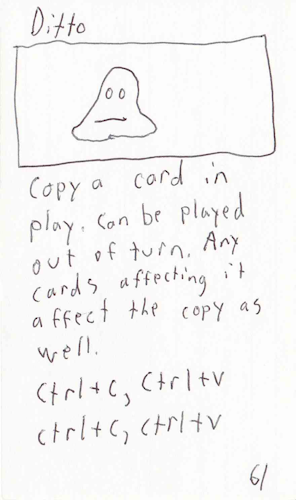 Ditto
Copy a card in
play. Can be played
out of turn. Any
cards affecting it
affect the copy as
well.
Ctrl+C, Ctrl+V
Ctrl+C, Ctrl+V
61